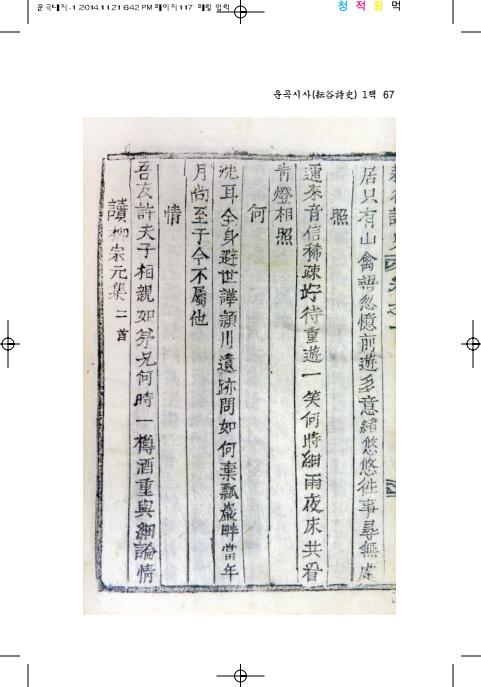 운곡대지-1 2014.11.21 6:42 PM 페이지117 매킬 입력
청 적 황 먹
운곡시사(耘谷詩史) 1책 67
居只有山禽語忽憶前遊多意緖悠悠徃事尋無處
照
邇來音信稀疎好待重遊一笑何時細雨夜床共看
靑燈相照
何
洗耳全身避世譁潁川遺跡問如何棄瓢巖畔當年
月尙至于今不屬他
情
吾友許夫子相親如弟兄何時一樽酒重與細論情
讀柳宗元集 二首